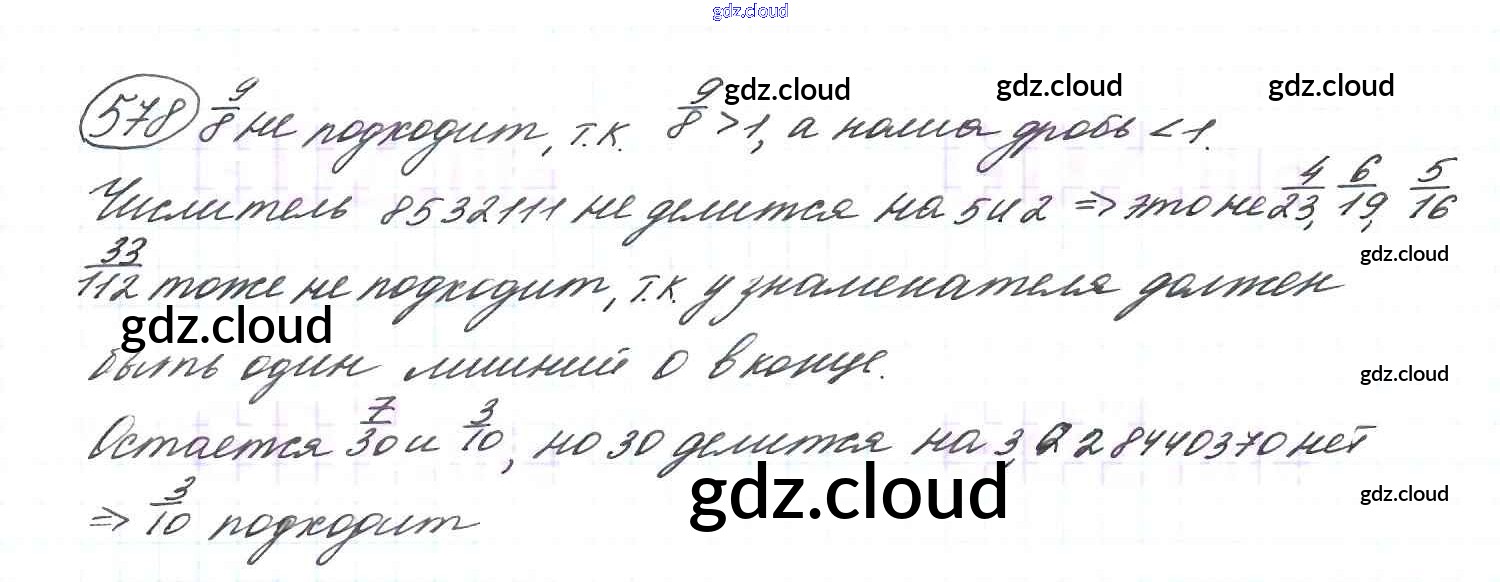 gdz.cloud
578 9/8 не подходит, т.к. 9/8 > 1, а наша дробь < 1.
gdz.cloud gdz.cloud gdz.cloud
Числитель 8532111 не делится на 5 и 2 => это не 4/23, 6/19, 5/16
gdz.cloud
33/112 тоже не подходит, т.к. у знаменателя должен
gdz.cloud
быть один лишний 0 в конце.
gdz.cloud
Остается 7/30 и 3/10, но 30 делится на 3, а 28440370 нет
gdz.cloud
=> 3/10 подходит
gdz.cloud